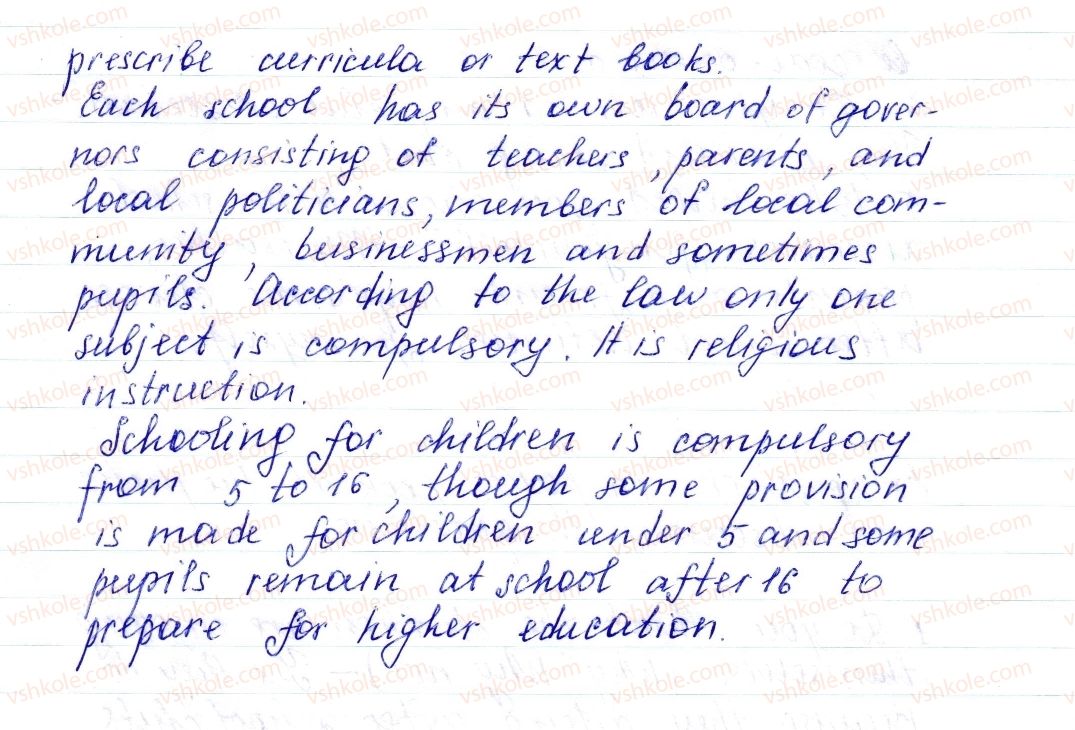 prescribe curricula or text books.
Each school has its own board of gover-
nors consisting of teachers, parents, and
local politicians, members of local com-
munity, businessmen and sometimes
pupils. According to the law only one
subject is compulsory. It is religious
instruction.
Schooling for children is compulsory
from 5 to 16, though some provision
is made for children under 5 and some
pupils remain at school after 16 to
prepare for higher education.